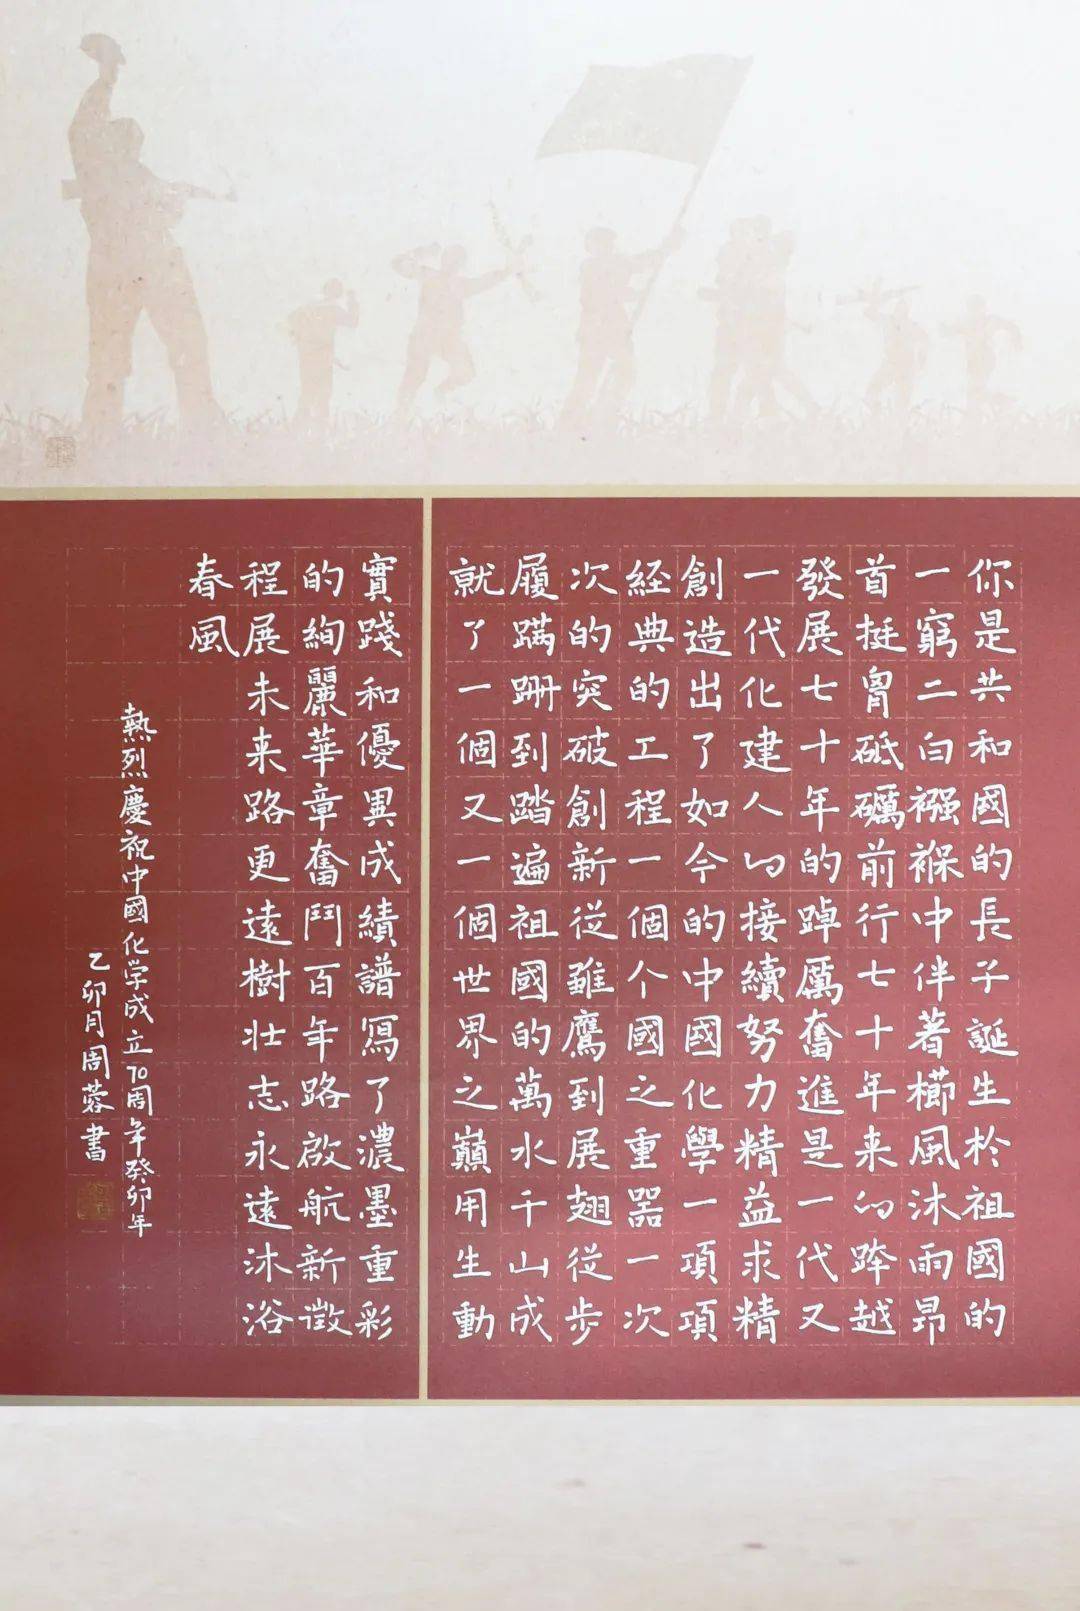 你是共和國的長子誕生於祖國的
一窮二白襁褓中伴著櫛風沐雨昂
首挺胷砥礪前行七十年来的跨越
發展七十年的踔厲奮進是一代又
一代化建人的接續努力精益求精
創造出了如今的中國化學一項項
經典的工程一個个國之重器一次
次的突破創新從雛鷹到展翅從步
履蹒跚到踏遍祖國的萬水千山成
就了一個又一個世界之巔用生動
實踐和優異成績譜寫了濃墨重彩
的絢麗華章奮鬥百年路啟航新徵
程展未来路更遠樹壮志永遠沐浴
春風
熱烈慶祝中國化学成立70周年癸卯年
乙卯月周蓉書